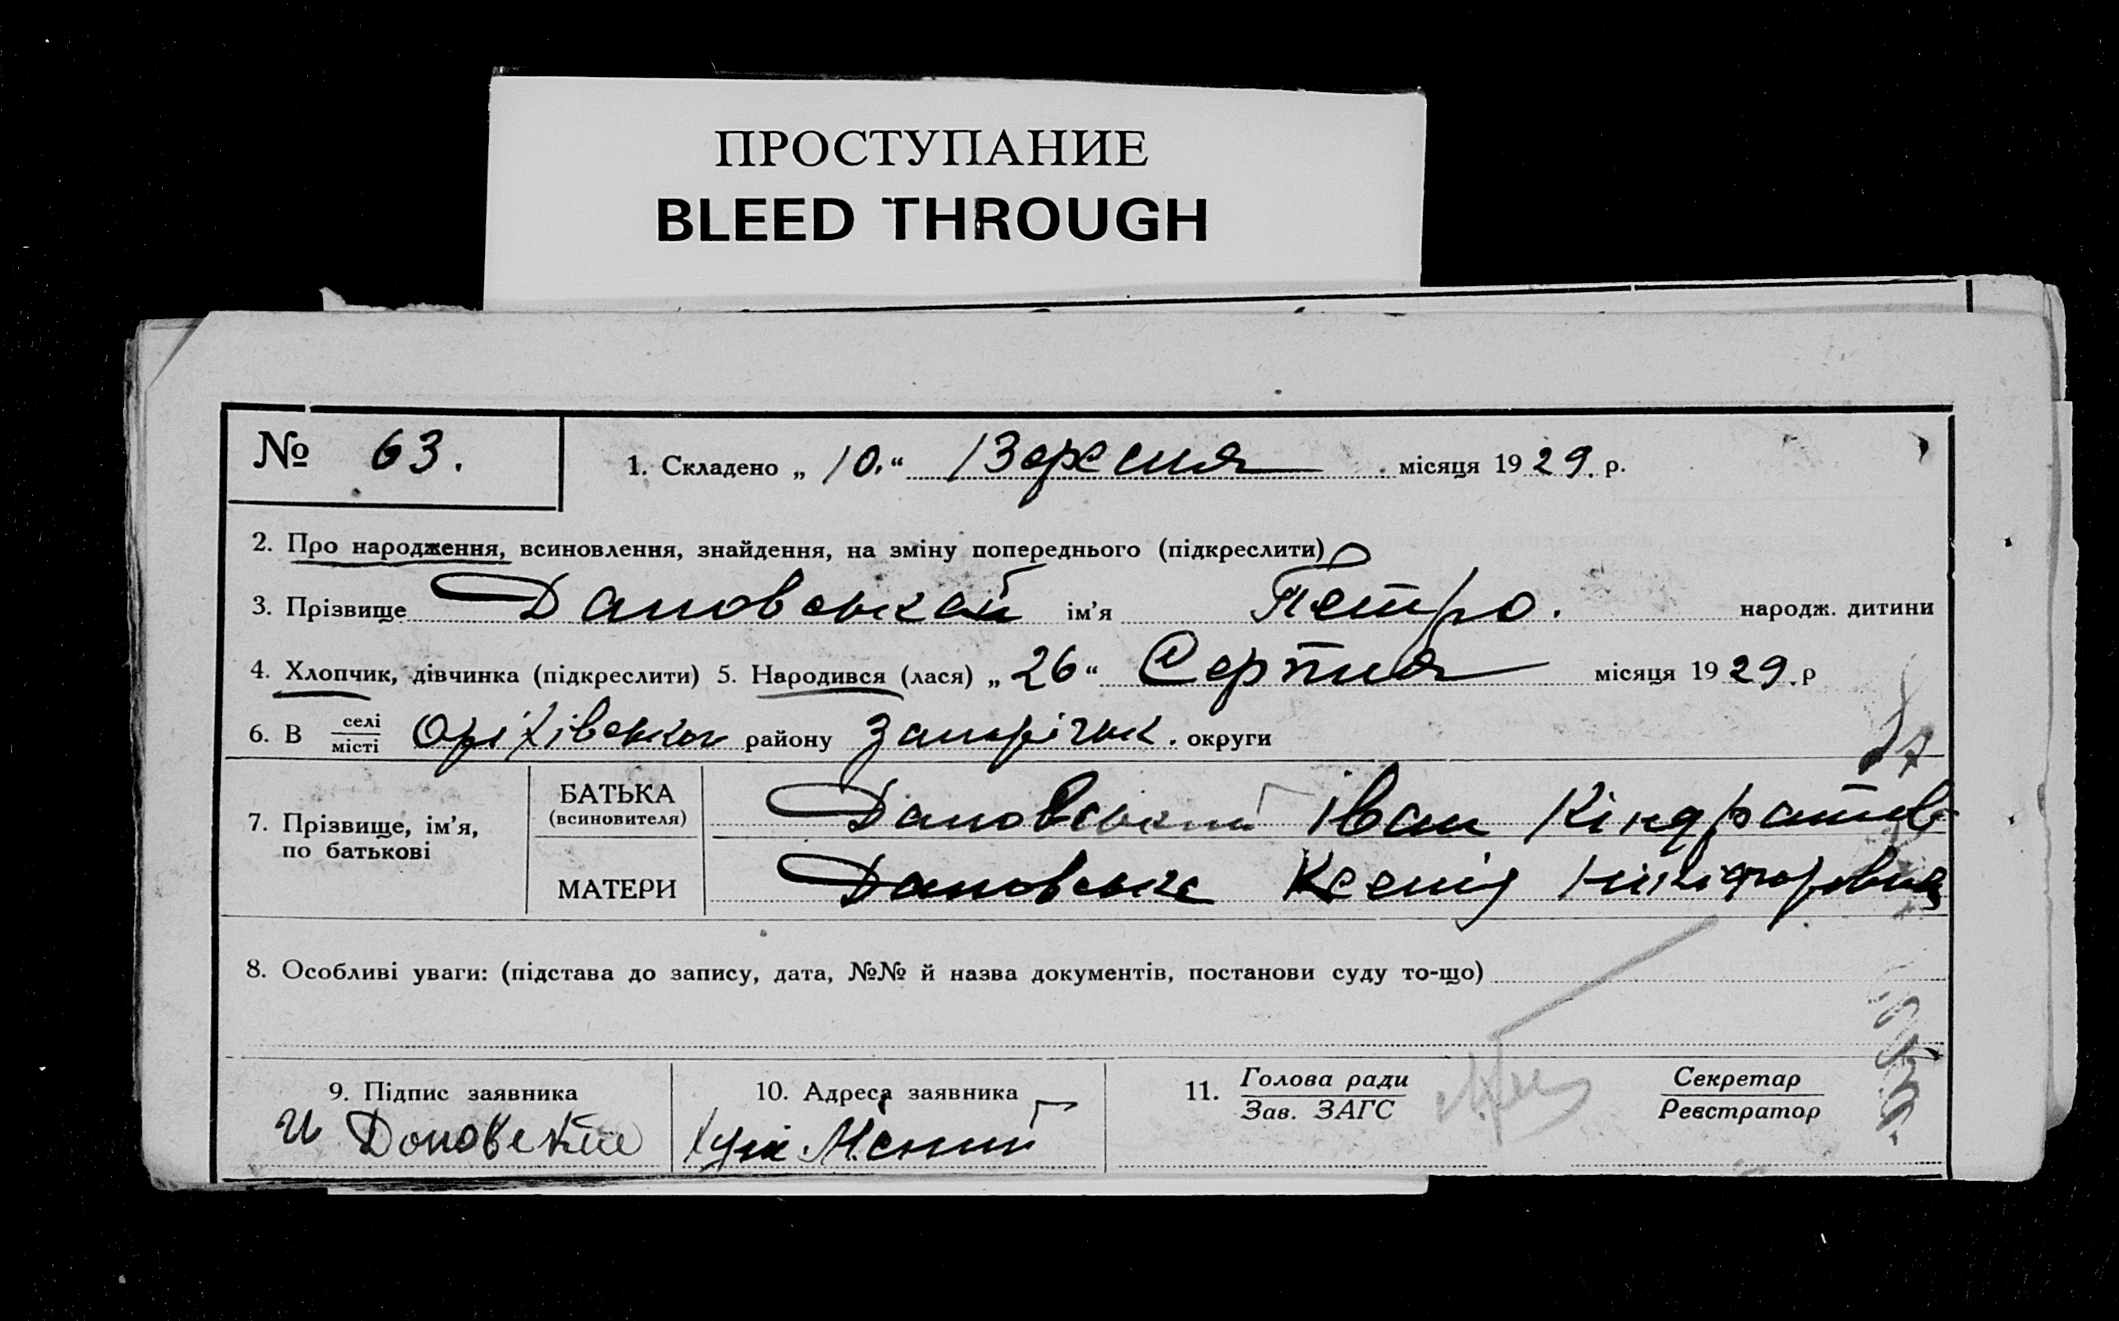 ПРОСТУПАНИЕ
BLEED THROUGH
№ 63.
1. Складено „ 10. “ Вересня місяця 1929. р.
2. Про народження, всиновлення, знайдення, на зміну попереднього (підкреслити)
3. Прізвище Дановський ім’я Петро. народж. дитини
4. Хлопчик, дівчинка (підкреслити) 5. Народився (лася) „ 26 “ Серпня місяця 1929. р
6. В селі
місті Оріхівськог району Запоріжськ. округи
7. Прізвище, ім’я,
по батькові
БАТЬКА
(всиновителя)
Дановський Іван Кіндратов
МАТЕРИ
Дановська Ксенія Никифоровна
8. Особливі уваги: (підстава до запису, дата, №№ й назва документів, постанови суду то-що)
9. Підпис заявника
И Доновский
10. Адреса заявника
11. Голова ради
Зав. ЗАГС
Секретар
Реєстратор